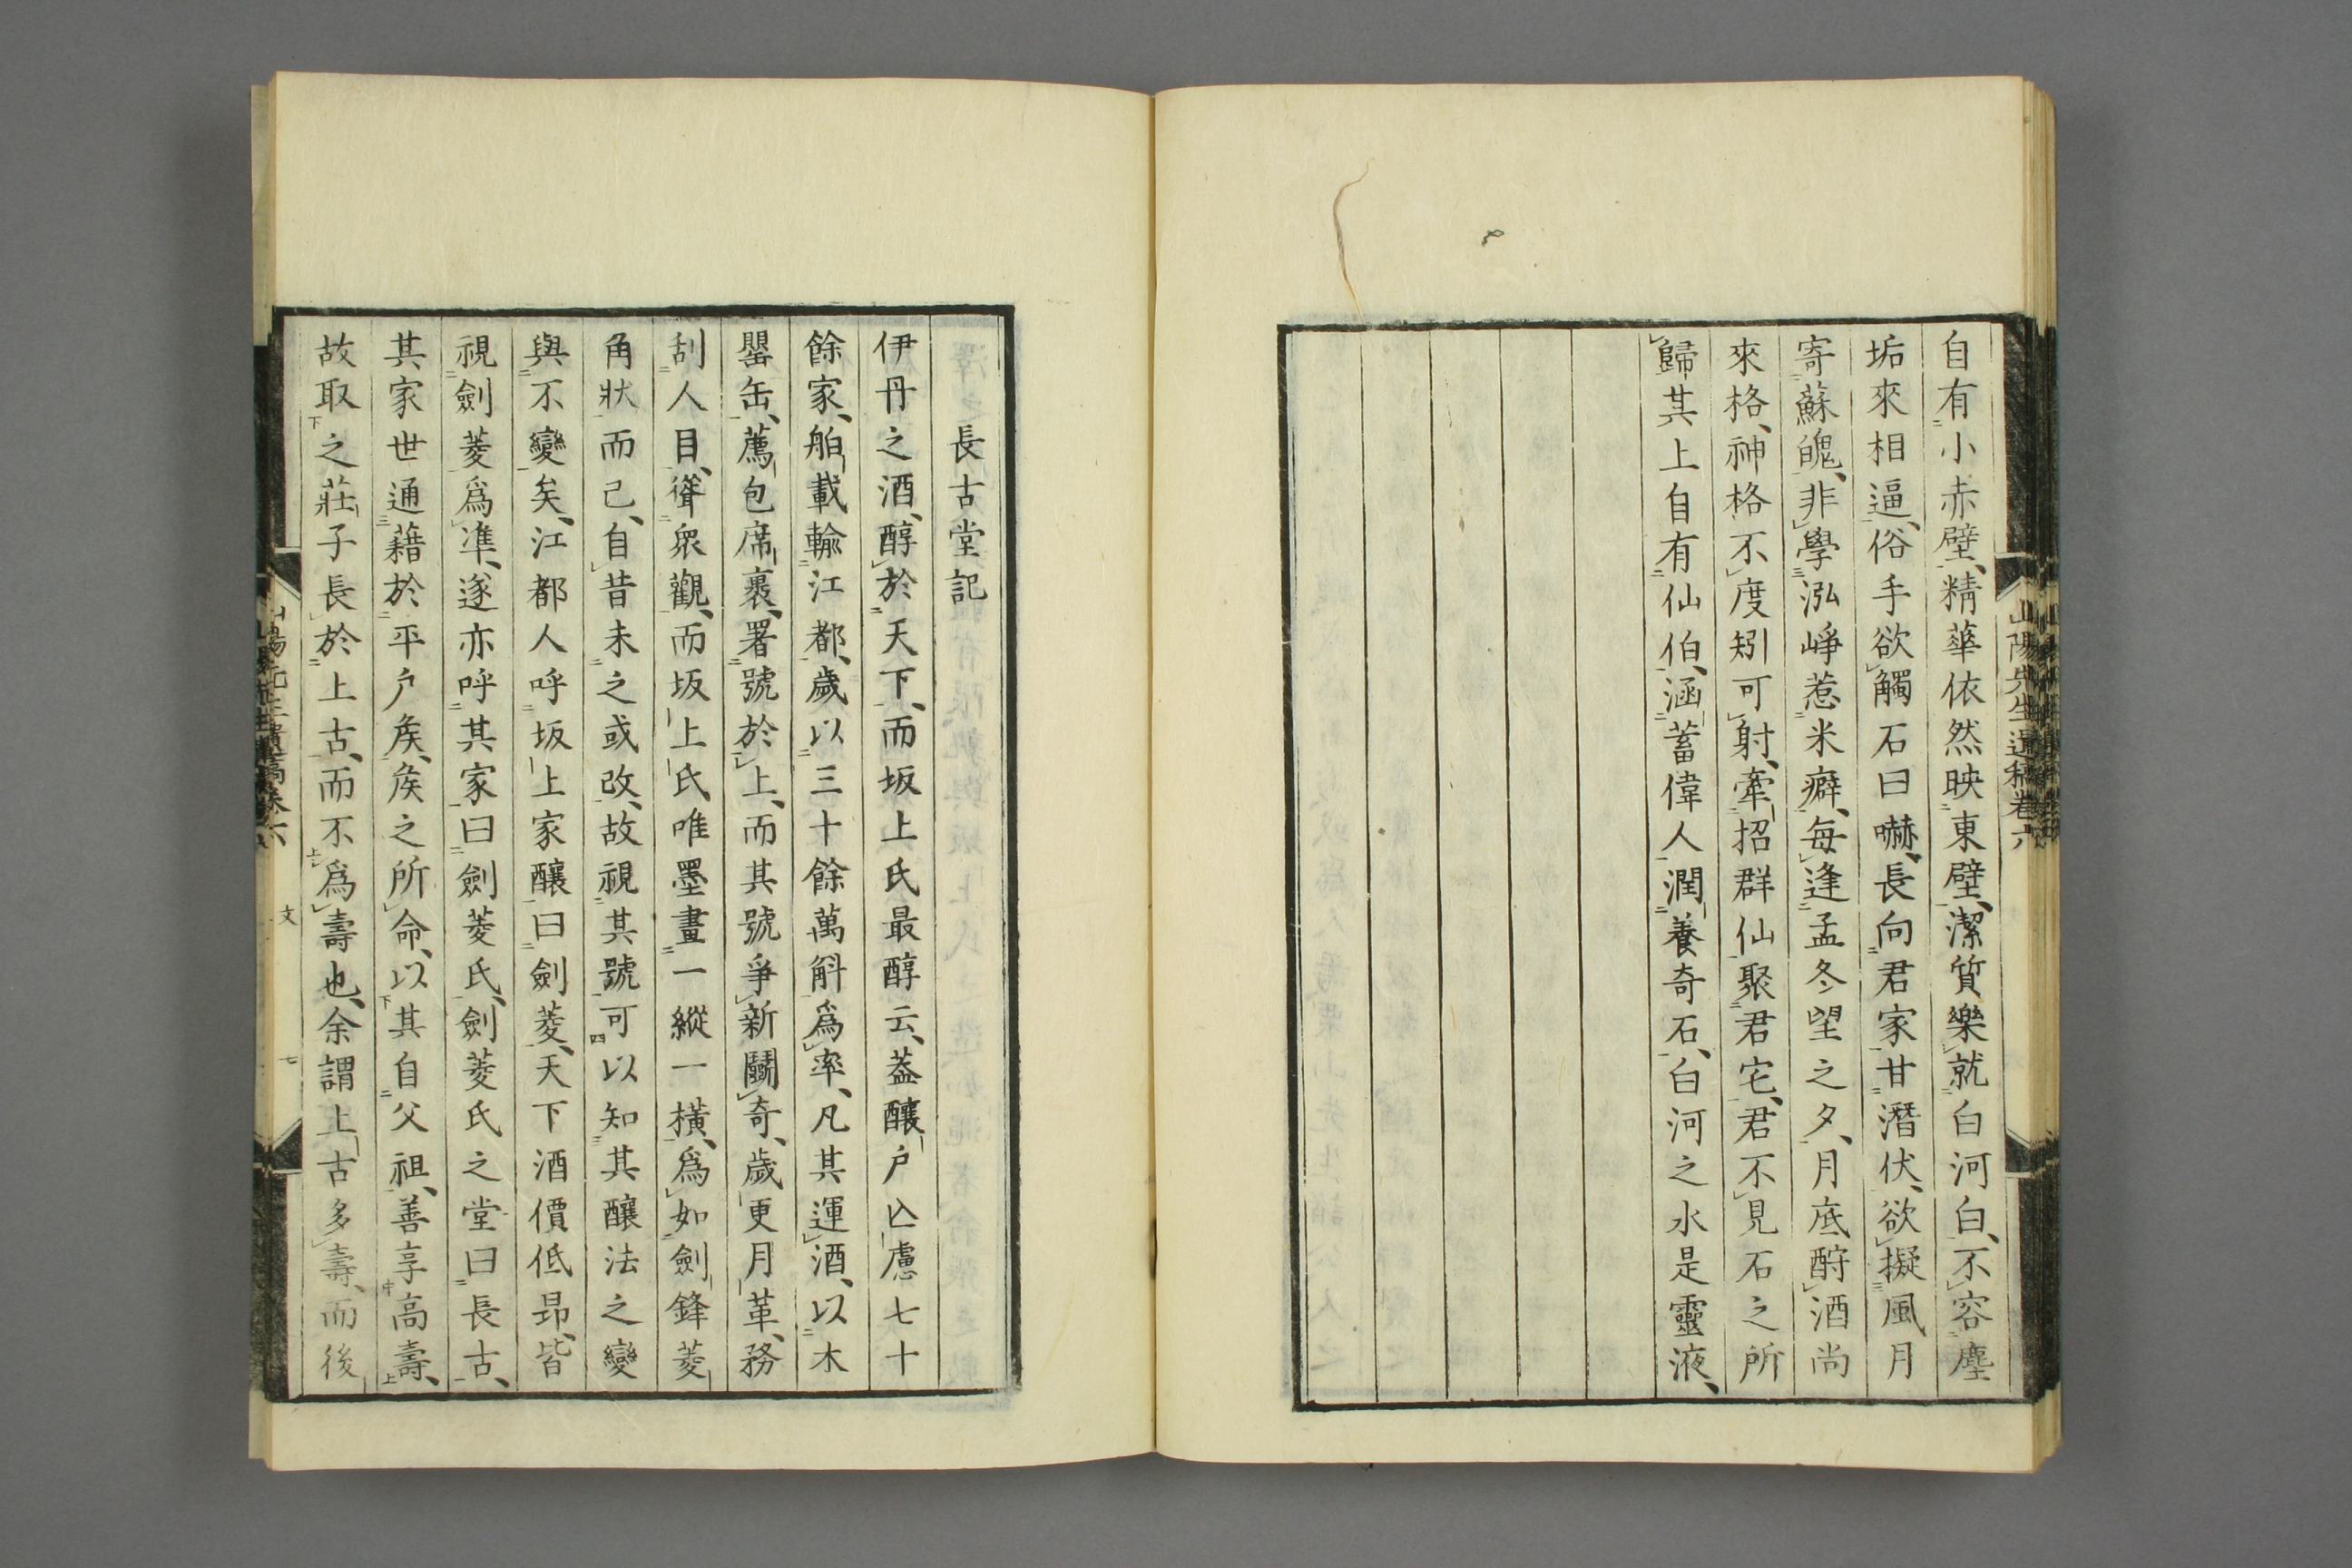 自有小赤壁、精華依然映東壁、潔質樂就白河白、不容塵
垢來相逼、俗手欲觸石曰嚇、長向君家甘潛伏、欲擬風月
寄蘇魄、非學泓崢惹米癖、每逢孟冬望之夕、月底酹酒尚
來格、神格不度矧可射、牽招群仙聚君宅、君不見石之所
歸其上自有仙伯、涵蓄偉人潤養奇石、白河之水是靈液、
山陽先生遺稿卷六
長古堂記
伊丹之酒、醇於天下、而坂上氏最醇云、葢釀戶亾慮七十
餘家、舶載輸江都、歲以三十餘萬斛爲率、凡其運酒、以木
罌缶、薦包席裹、署號於上、而其號爭新鬭奇、歲更月革、務
刮人目、聳衆觀、而坂上氏唯墨畫一縱一橫、爲如劍鋒菱
角狀而已、自昔未之或改、故視其號可以知其釀法之變
與不變矣、江都人呼坂上家釀曰劍菱、天下酒價低昂、皆
視劍菱爲準、遂亦呼其家曰劍菱氏、劍菱氏之堂曰長古、
其家世通藉於平戶矦、矦之所命、以其自父祖、善享高壽、
故取之莊子長於上古、而不爲壽也、余謂上古多壽、而後
文
七